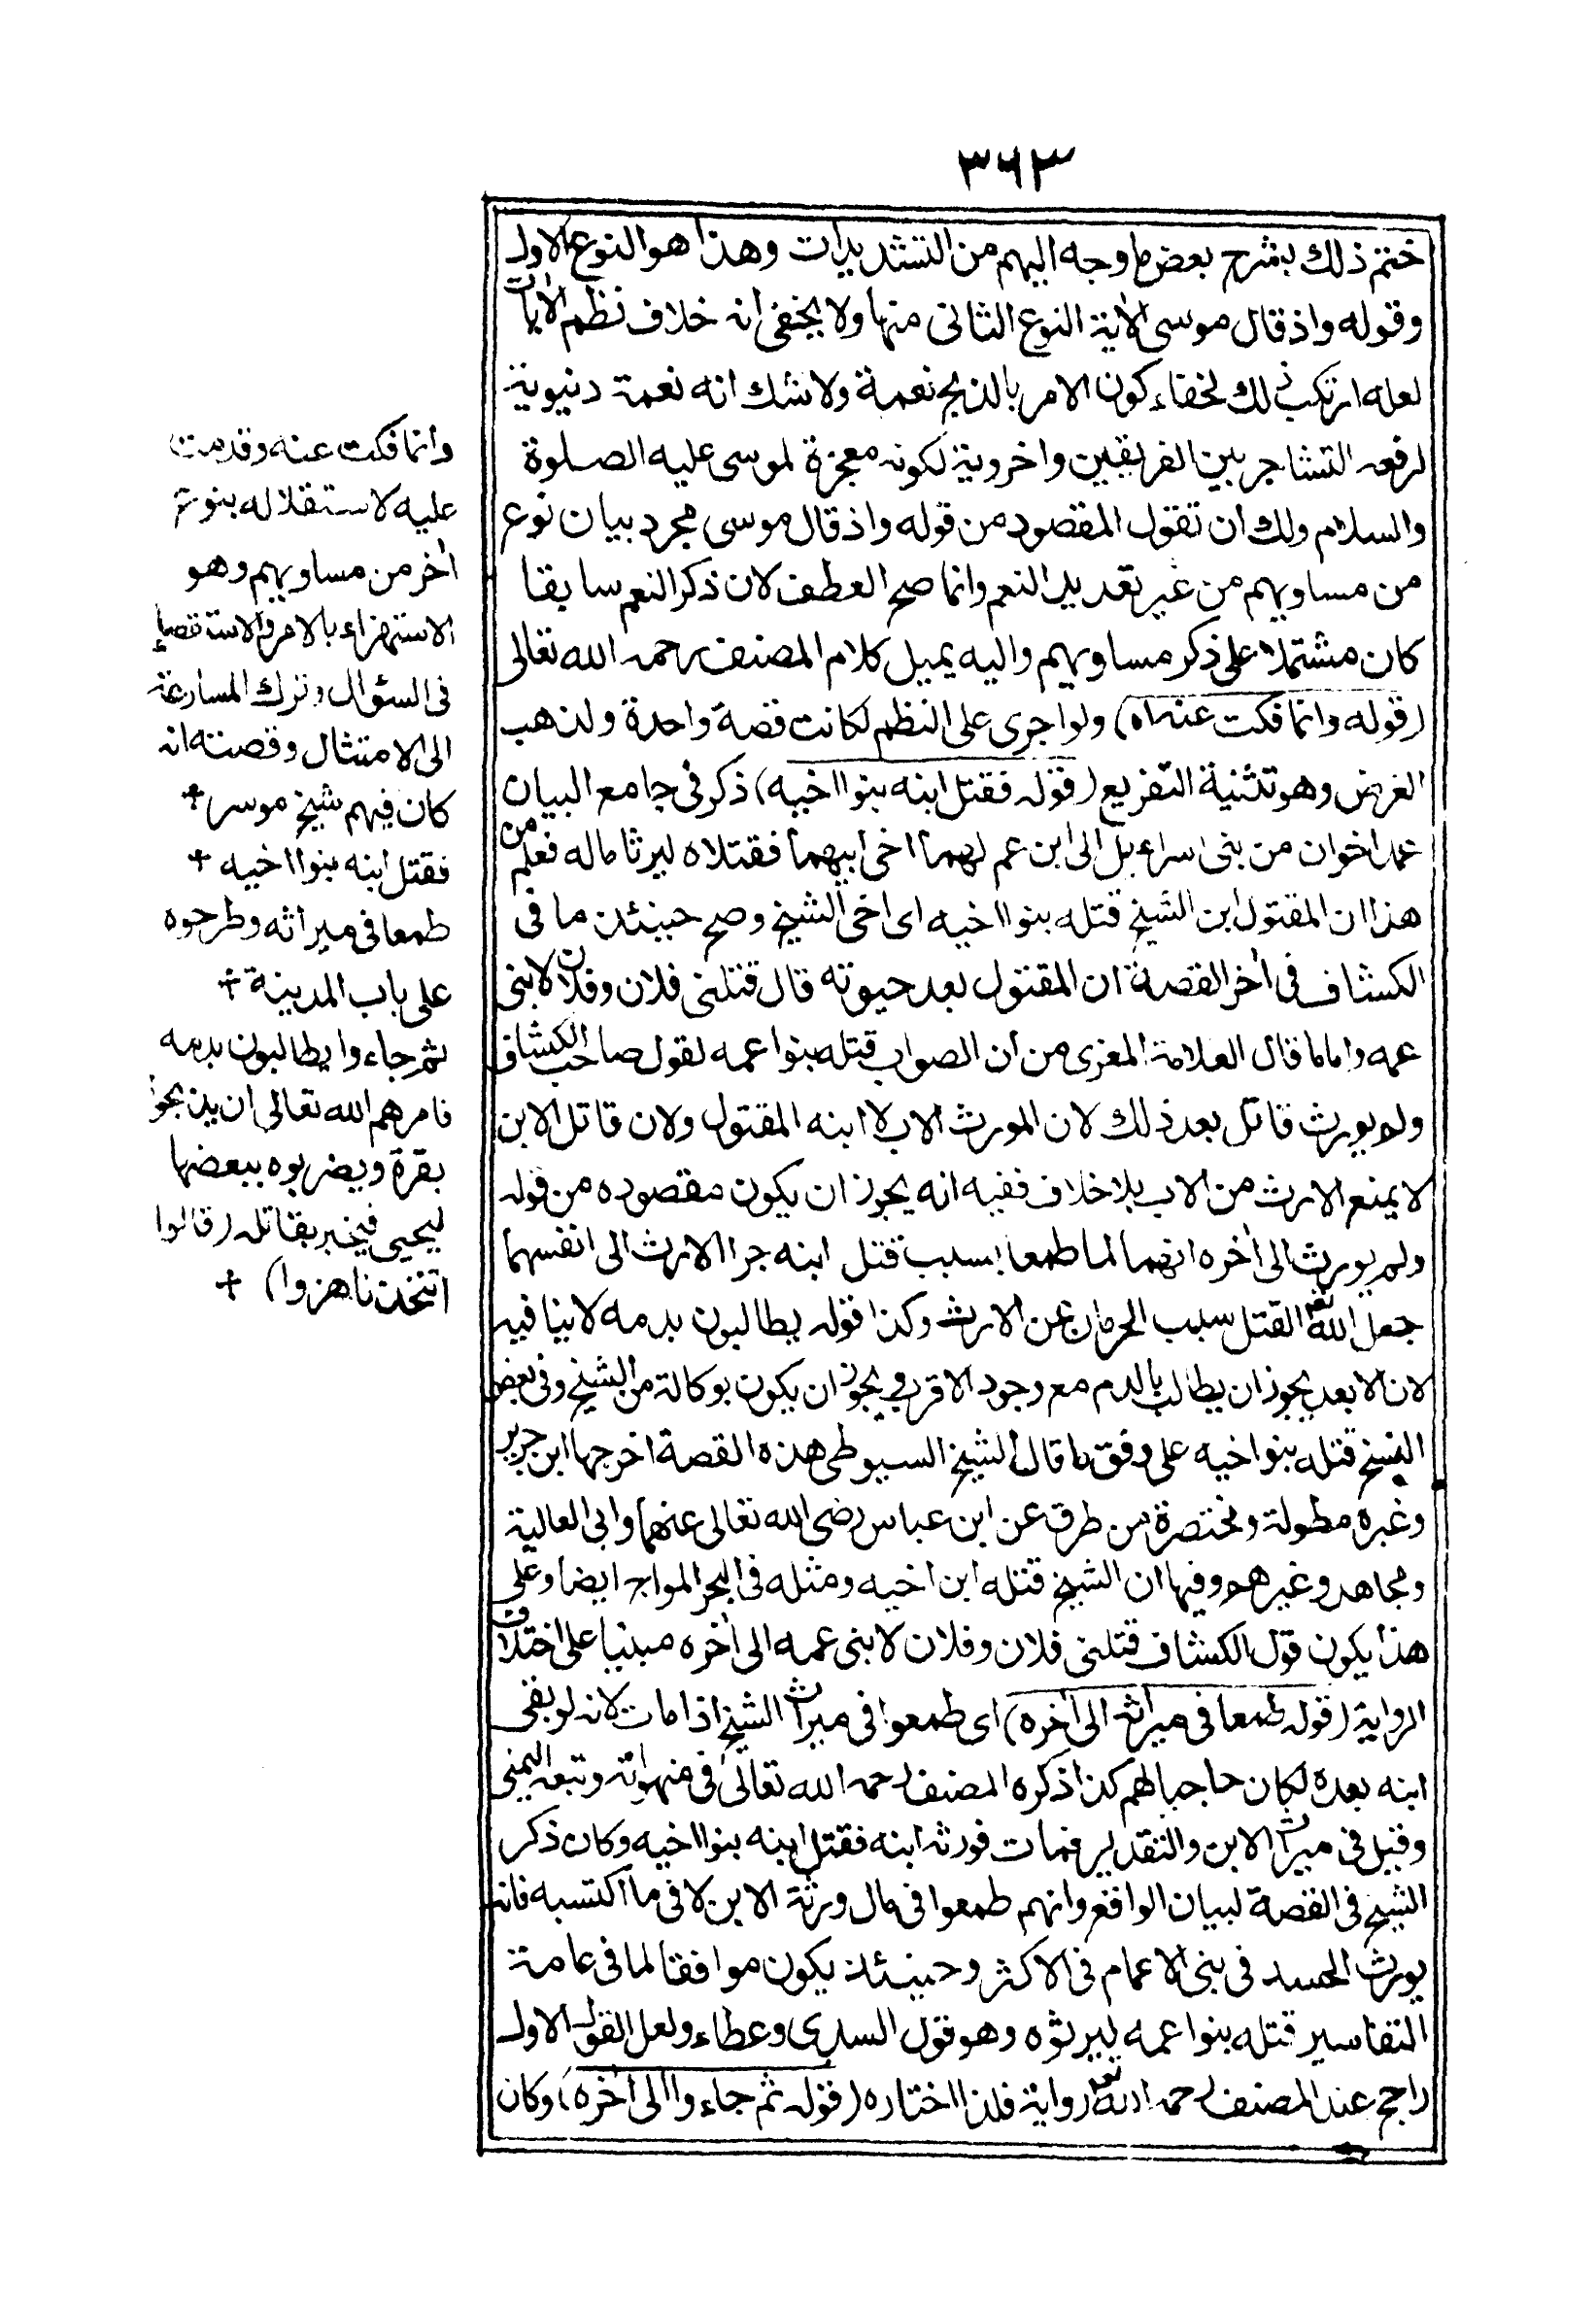 ٣٦٣
ختم ذلك بشرح بعض ما وجه اليهم من التشديدات وهذا هو النوع الاول
وقوله واذ قال موسى الآية النوع الثانى منها ولا يخفى انه خلاف نظم الآيات
لعله ارتكب ذلك لخفاء كون الامر بالذبح نعمة ولا شك انه نعمة دنيوية
لرفعه التشاجر بين الفريقين واخروية لكونه معجزة لموسى عليه الصلوة
والسلام ولك ان تقول المقصود من قوله واذ قال موسى مجرد بيان نوع
من مساويهم من غير تعديد النعم وانما صح العطف لان ذكر النعم سابقا
كان مشتملا على ذكر مساويهم واليه يميل كلام المصنف رحمه الله تعالى
(قوله وانما فكت عنه اه) ولو اجرى على النظم لكانت قصة واحدة ولذهب
الغرض وهو تثنية التقريع (قوله فقتل ابنه بنوا اخيه) ذكر فى جامع البيان
عمد اخوان من بنى اسراءيل الى ابن عم لهما اخى ابيهما فقتلاه ليرثا ماله فعلم من
هذا ان المقتول ابن الشيخ قتله بنوا اخيه اى اخى الشيخ وصح حينئذ ما فى
الكشاف فى آخر القصة ان المقتول بعد حيوته قال قتلنى فلان وفلان لابنى
عمه واما ما قال العلامة المغزى من ان الصواب قتله بنوا عمه لقول صاحب الكشاف
ولم يورث قاتل بعد ذلك لان المورث الاب لا ابنه المقتول ولان قاتل الابن
لا يمنع الارث من الاب بلا خلاف ففيه انه يجوز ان يكون مقصوده من قوله
ولم يورث الى آخره انهما لما طمعا بسبب قتل ابنه جرا الارث الى انفسهما
جعل الله تع القتل سبب الحرمان عن الارث وكذا قوله يطالبون بدمه لا ينافيه
لان الابعد يجوز ان يطالب بالدم مع وجود الاقرب ويجوز ان يكون بوكالة من الشيخ وفى بعض
النسخ قتله بنوا اخيه على وفق ما قال الشيخ السيوطى هذه القصة اخرجها ابن جرير
وغيره مطولة ومختصرة من طرق عن ابن عباس رضى الله تعالى عنهما وابى العالية
ومجاهد وغيرهم وفيها ان الشيخ قتله ابن اخيه ومثله فى البحر المواج ايضا وعلى
هذا يكون قول الكشاف قتلنى فلان وفلان لابنى عمه الى آخره مبنيا على اختلاف
الرواية (قوله طمعا فى ميراثه الى آخره) اى طمعوا فى ميراث الشيخ اذا مات لانه لو بقى
ابنه بعده لكان حاجبا لهم كذا ذكره المصنف رحمه الله تعالى فى منهواته وتبعه اليمنى
وقيل فى ميراث الابن والتقدير فمات فورثه ابنه فقتل ابنه بنوا اخيه وكان ذكر
الشيخ فى القصة لبيان الواقع وانهم طمعوا فى مال ورثة الابن لا فى ما اكتسبه فانه
يورث الحسد فى بنى الاعمام فى الاكثر وحينئذ يكون موافقا لما فى عامة
التفاسير قتله بنوا عمه ليرثوه وهو قول السدى وعطاء ولعل القول الاول
راجح عند المصنف رحمه الله تع رواية فلذا اختاره (قوله ثم جاءوا الى آخره) وكان
وانما فكت عنه وقدمت
عليه لاستقلاله بنوع
آخر من مساويهم وهو
الاستهزاء بالامر والاستقصاء
فى السئوال وترك المسارعة
الى الامتثال وقصته انه
كان فيهم شيخ موسر +
فقتل ابنه بنوا اخيه +
طمعا فى ميراثه وطرحوه
على باب المدينة +
ثم جاءوا يطالبون بدمه
فامرهم الله تعالى ان يذبحوا
بقرة ويضربوه ببعضها
ليحيى فيخبر بقاتله (قالوا
اتتخذنا هزوا) +